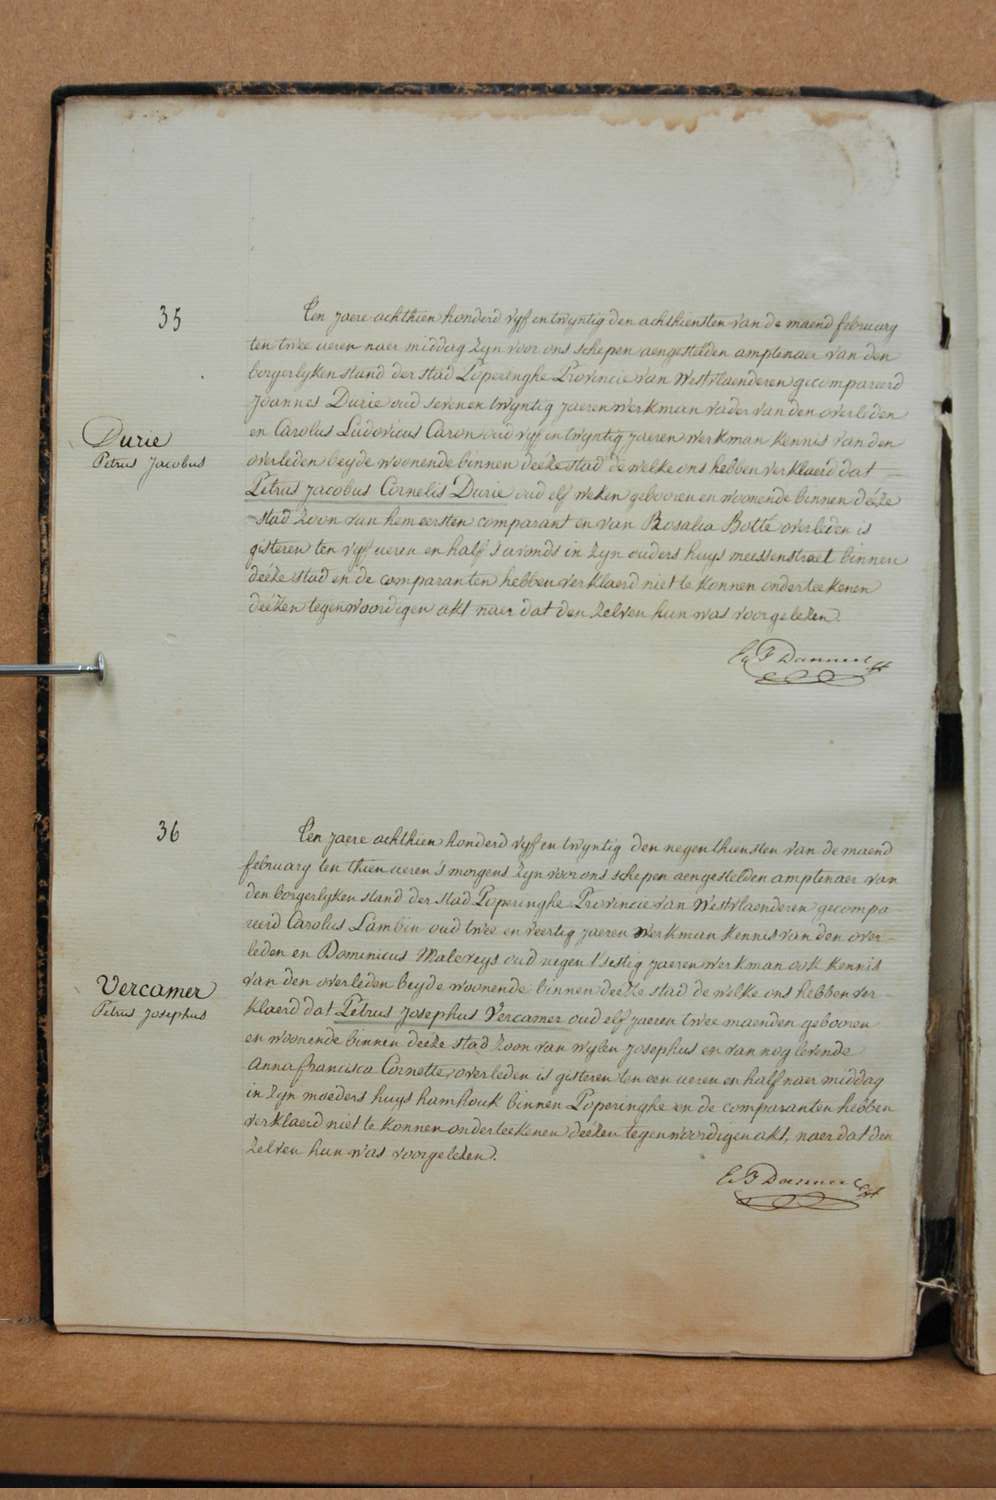 35
Ten jaere achthien honderd vyf en twyntig den achthiensten van de maend february
ten twee ueren naer middag zyn voor ons schepen aengestelden amptenaer van den
borgerlyken stand der stad Poperinghe Provincie van Westvlaenderen gecompareerd
Joannes Durie oud seven en twyntig jaeren werkman vader van den overleden
en Carolus Ludovicus Caron oud vyf en twyntig jaeren werkman kennis van den
Durie
Petrus Jacobus
overleden beyde woonende binnen deéze stad de welke ons hebben verklaerd dat
Petrus Jacobus Cornelis Durie oud elf weken gebooren en woonende binnen deéze
stad zoon van hem eersten comparant en van Rosalia Botte overleden is
gisteren ten vyf ueren en half s'avonds in zyn ouders huys meessenstraet binnen
deéze stad en de comparanten hebben verklaerd niet te konnen onderteekenen
deézen tegenwoordigen akt naer dat den zelven hun was voorgelezen.
36
Ten jaere achthien honderd vyf en twyntig den negenthiensten van de maend
february ten thien ueren s'morgens zyn voor ons schepen aengestelden amptenaer van
den borgerlyken stand der stad Poperinghe Provincie van Westvlaenderen gecompa
reerd Carolus Lambin oud twee en veertig jaeren werkman kennis van den over-
leden en Dominicus Maleveys oud negen t'sestig jaeren werkman ook kennis
van den overleden beyde woonende binnen deeze stad de welke ons hebben ver-
Vercamer
Petrus Josephus
klaerd dat Petrus Josephus Vercamer oud elf jaeren twee maenden gebooren
en woonende binnen deeze stad zoon van wylen Josephus en van nog levende
Anna francisca Cornette, overleden is gisteren ten een ueren en half naer middag
in zyn moeders huys hamhouk binnen Poperinghe en de comparanten hebben
verklaerd niet te konnen onderteekenen deézen tegenwoordigen akt, naer dat den
zelven hun was voorgelezen.